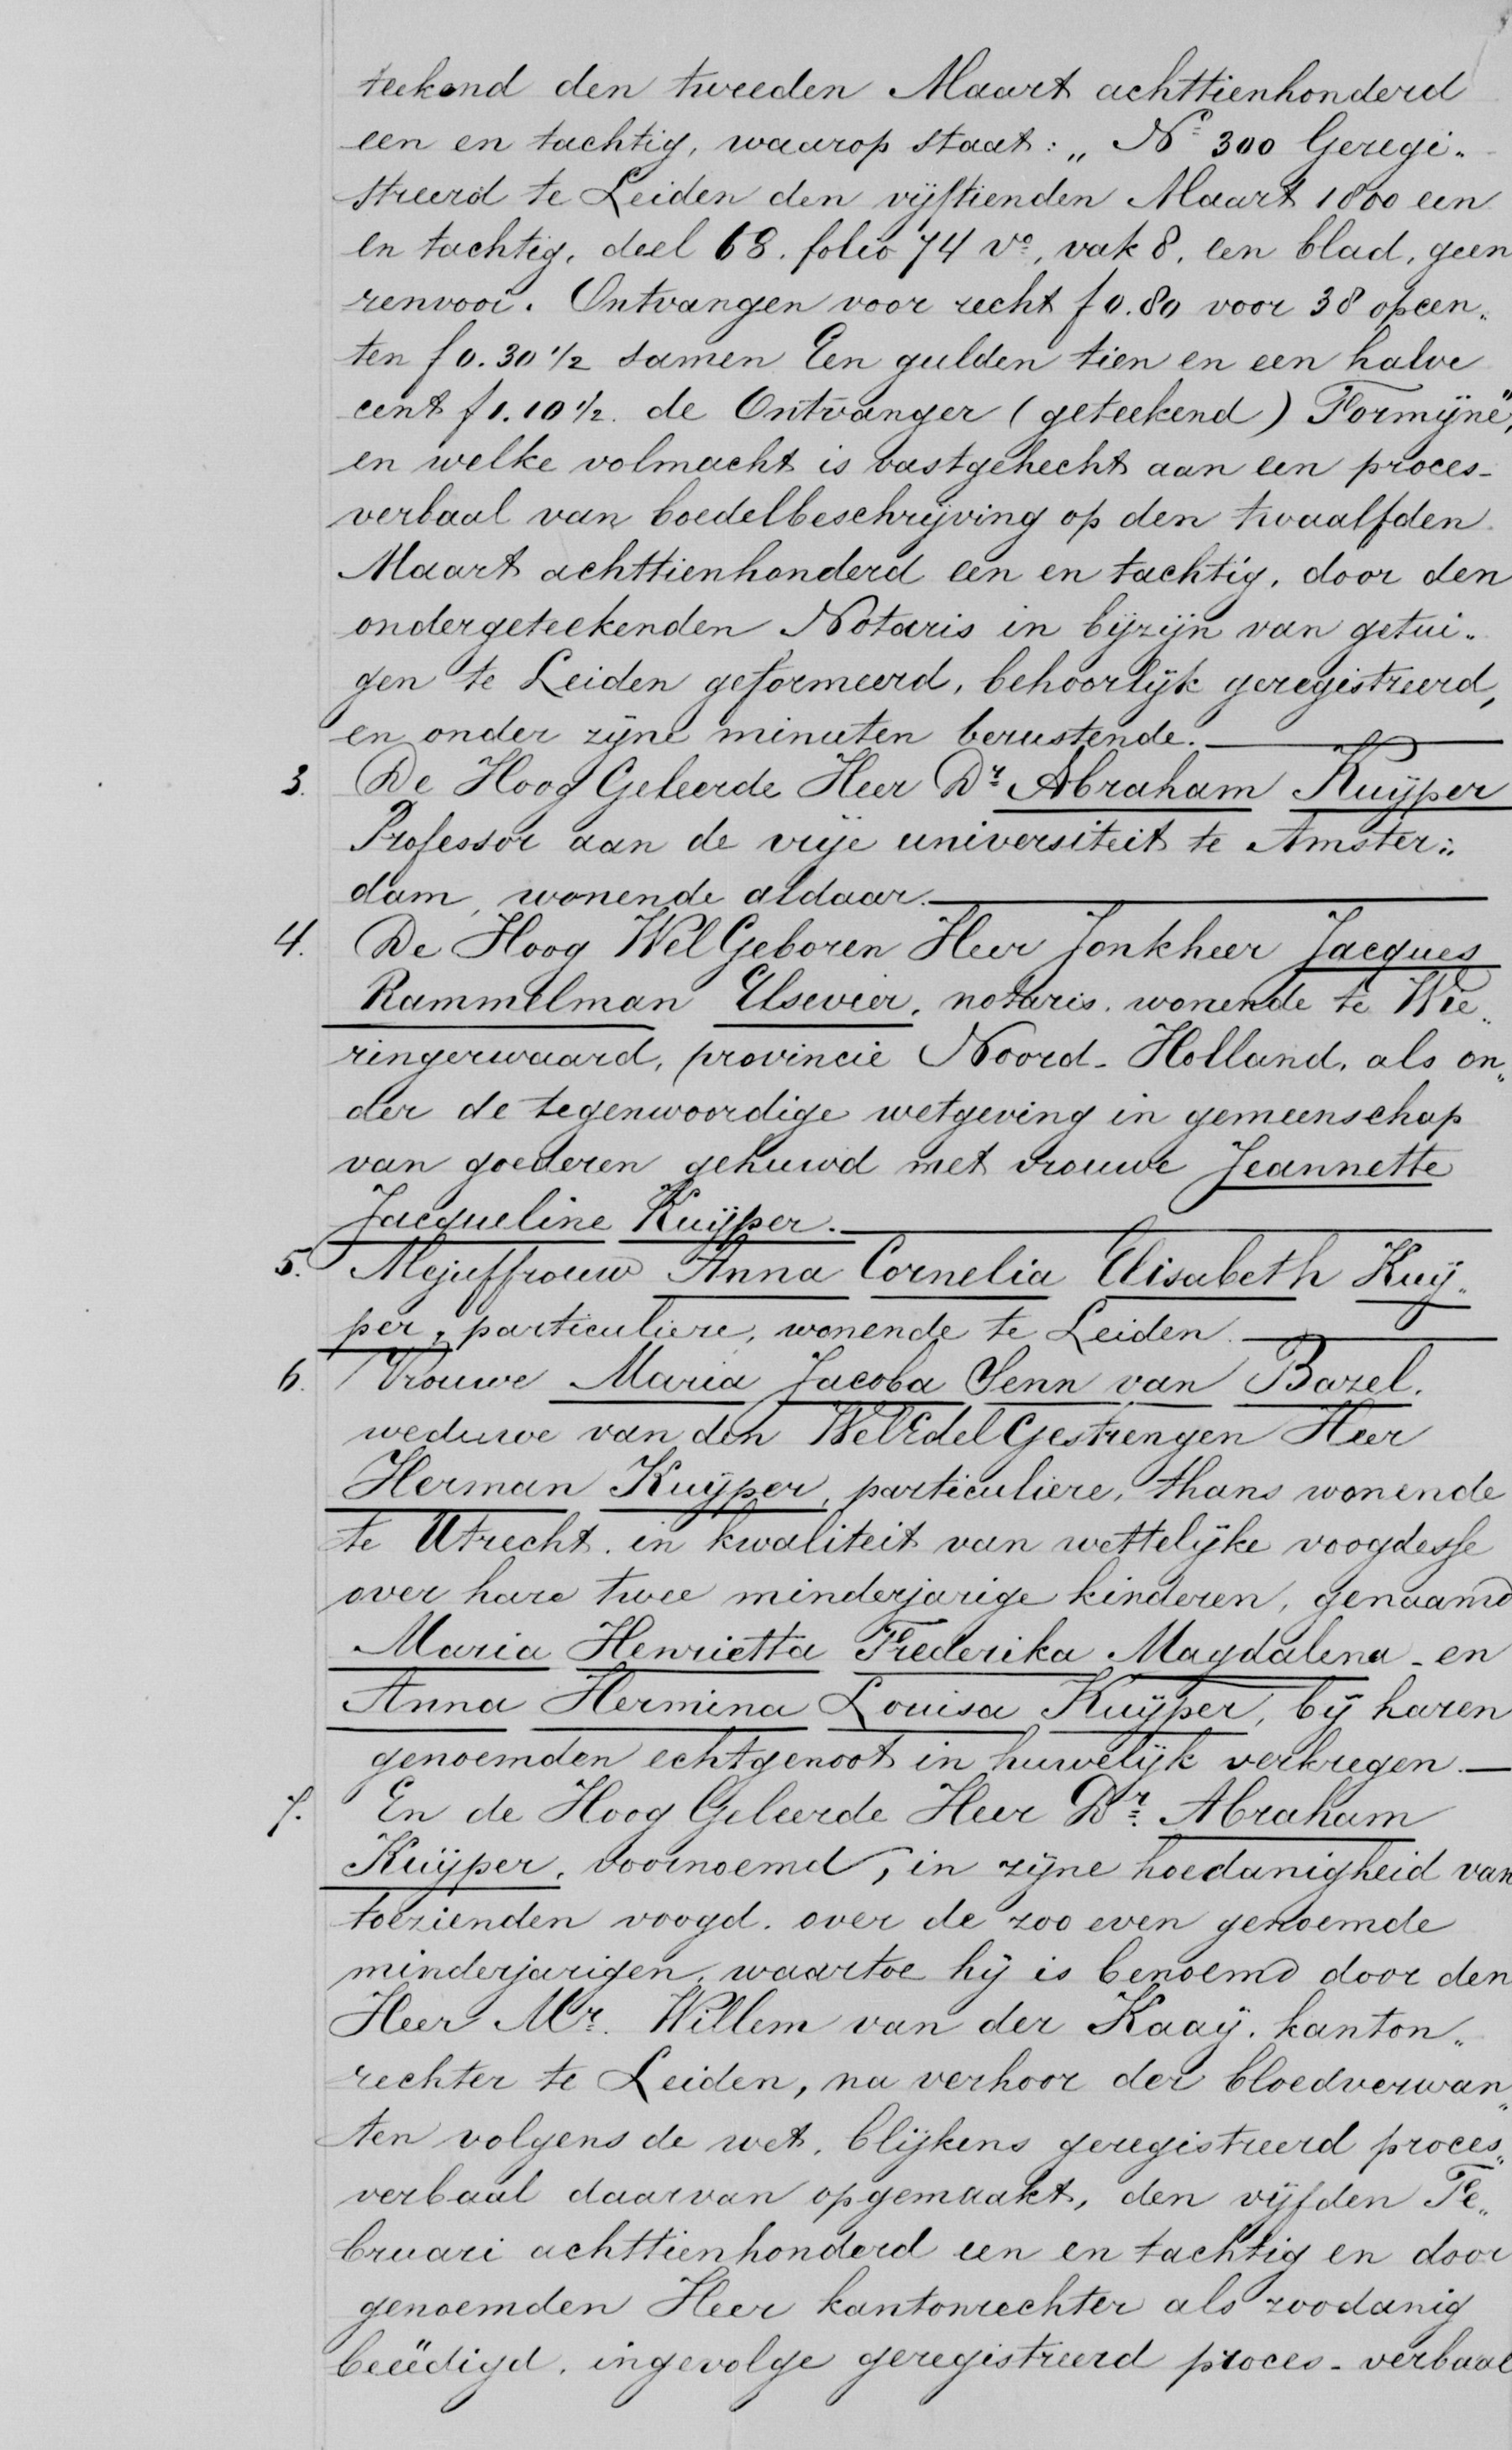 teekend den tweeden Maart achttienhonderd
een en tachtig, waarop staat: „ No 300 Geregi„
streerd te Leiden den vijftienden Maart 1800 een
en tachtig, deel 68. folio 74 vo, vak 8. een blad, geen
renvooi. Ontvangen voor recht f 0.80 voor 38 opcen„
ten f 0.30 1/2 samen Een gulden tien en een halve
cent f 1.10 1/2. de Ontvanger (geteekend) Formijne",
en welke volmacht is vastgehecht aan een proces-
verbaal van boedelbeschrijving op den twaalfden
Maart achttienhonderd een en tachtig, door den
ondergeteekenden Notaris in bijzijn van getui„
gen te Leiden geformeerd, behoorlijk geregistreerd,
en onder zijne minuten berustende.
3. De Hoog Geleerde Heer Dr Abraham Kuijper
Professor aan de vrije universiteit te Amster„
dam, wonende aldaar.
4. De Hoog WelGeboren Heer Jonkheer Jacques
Rammelman Elsevier, notaris, wonende te Wie„
ringerwaard, provincie Noord-Holland, als on„
der de tegenwoordige wetgeving in gemeenschap
van goederen gehuwd met vrouwe Jeannette
Jacqueline Kuijper.
5. Mejuffrouw Anna Cornelia Elisabeth Kuij„
per, particuliere, wonende te Leiden.
6. Vrouwe Maria Jacoba Senn van Bazel,
weduwe van den WelEdelGestrengen Heer
Herman Kuijper, particuliere, thans wonende
te Utrecht, in kwaliteit van wettelijke voogdesse
over hare twee minderjarige kinderen, genaamd
Maria Henrietta Frederika Magdalena - en
Anna Hermina Louisa Kuijper, bij haren
genoemden echtgenoot in huwelijk verkregen.
7. En de Hoog Geleerde Heer Dr. Abraham
Kuijper, voornoemd, in zijne hoedanigheid van
toezienden voogd. over de zoo even genoemde
minderjarigen, waartoe hij is benoemd door den
Heer Mr. Willem van der Kaaij, kanton„
rechter te Leiden, na verhoor der bloedverwan„
ten volgens de wet, blijkens geregistreerd proces„
verbaal daarvan opgemaakt, den vijfden Fe„
bruari achttienhonderd een en tachtig en door
genoemden Heer kantonrechter als zoodanig
beëedigd, ingevolge geregistreerd proces-verbaal